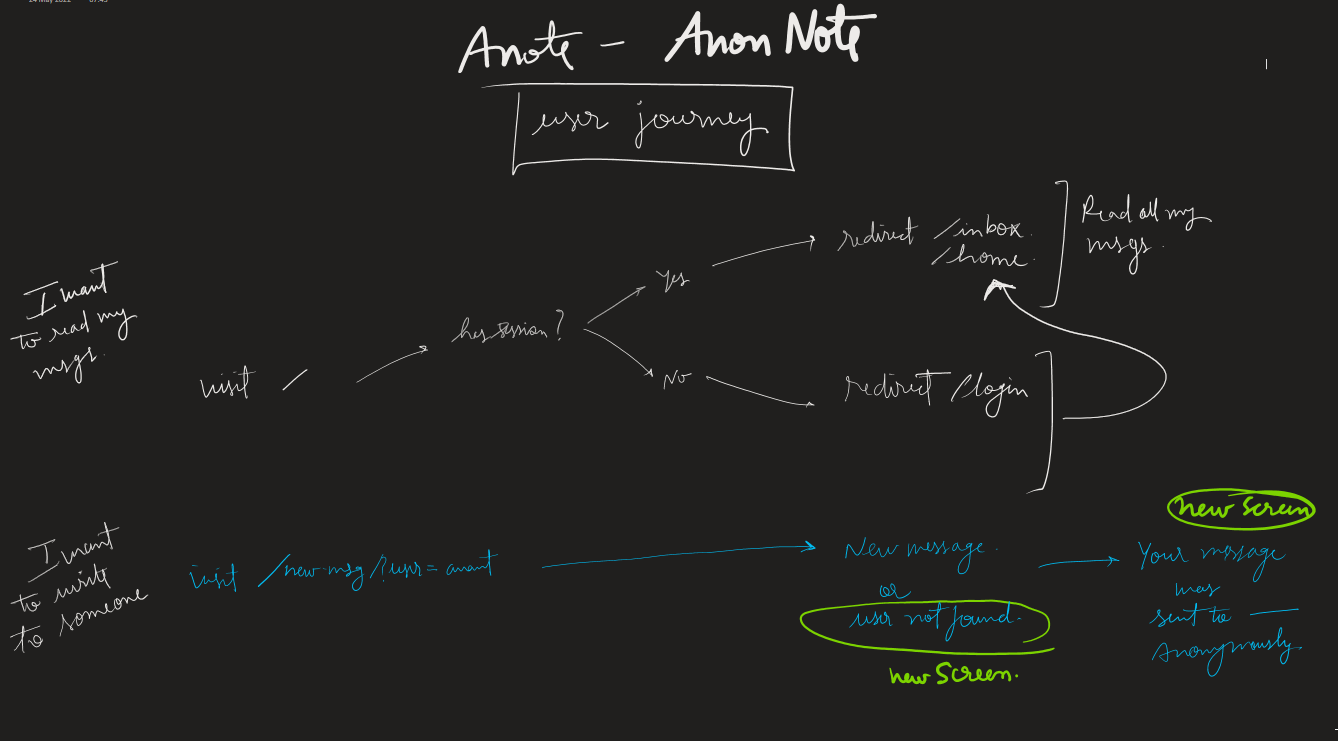 24 May 2022 07:45
Anote - Anon Note
user journey
I want
to read my
msgs.
visit /
has session?
Yes
No
redirect /inbox.
/home.
Read all my
msgs.
redirect /login
I want
to write
to someone
visit /new-msg/?user=anant
New message.
or
user not found.
new Screen.
new Screen
Your message
was
sent to —
Anonymously.